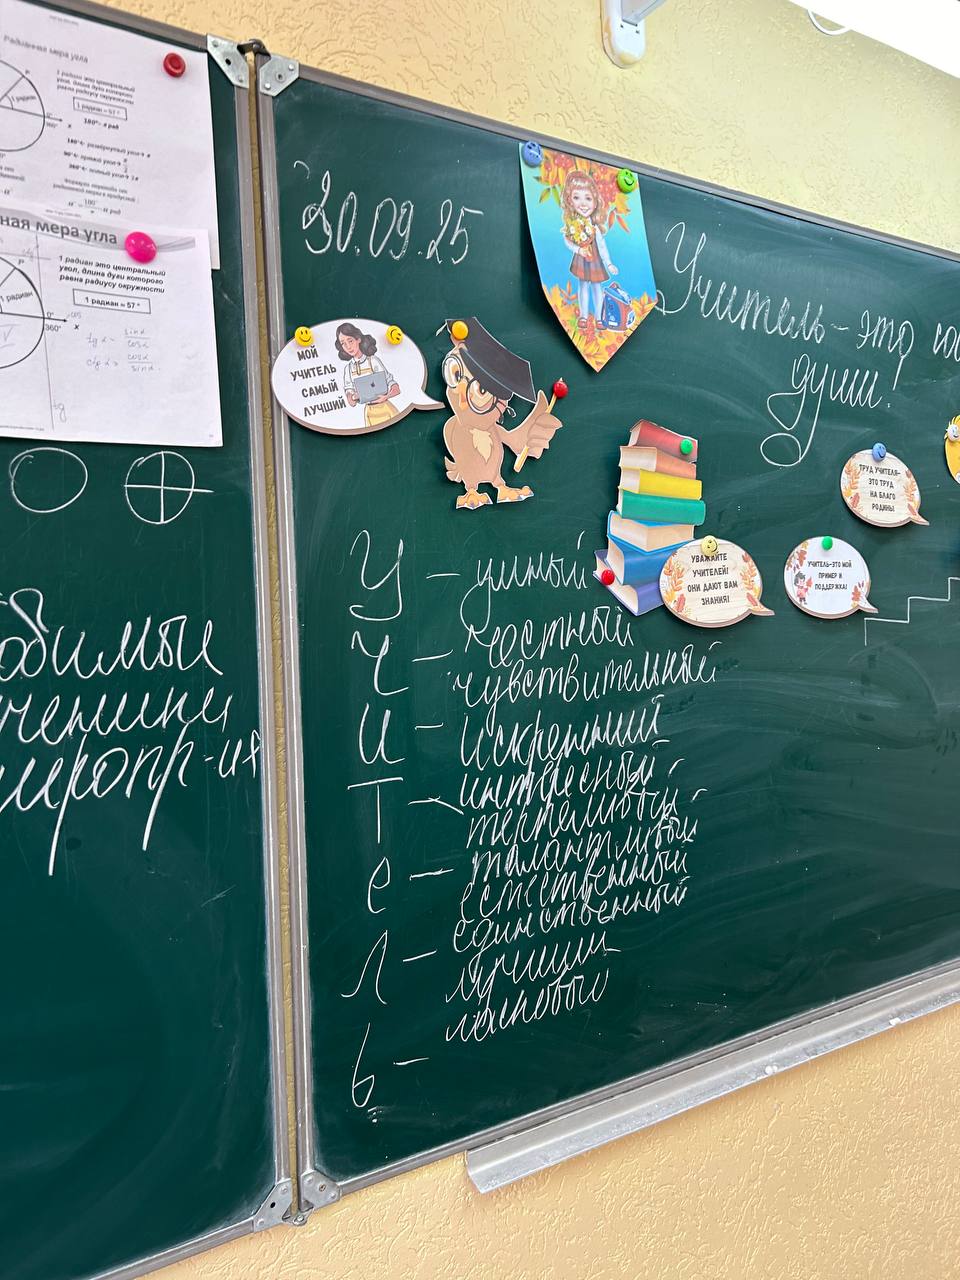 Радианная мера угла
1 радиан
1 радиан это центральный
угол, длина дуги которого
равна радиусу окружности
1 радиан ≈ 57°
180°= π рад
0°
360°
x
180°- развёрнутый угол → π
90°- прямой угол → π/2
360°- полный угол → 2π
Формула перехода от
ная мера угла
1 радиан это центральный
угол, длина дуги которого
равна радиусу окружности
1 радиан
1 радиан ≈ 57°
0°
360°
x
cos
tg α = sin α / cos α
ctg α = cos α / sin α
tg
обимые
ченики
меропр-ия
30.09.25
Учитель - это
души!
МОЙ
УЧИТЕЛЬ
САМЫЙ
ЛУЧШИЙ
ТРУД УЧИТЕЛЯ-
ЭТО ТРУД
НА БЛАГО
РОДИНЫ
УВАЖАЙТЕ
УЧИТЕЛЕЙ!
ОНИ ДАЮТ ВАМ
ЗНАНИЯ!
УЧИТЕЛЬ-ЭТО МОЙ
ПРИМЕР И
ПОДДЕРЖКА!
У - умный
Ч - честный
чувствительный
И - искренний
интересный
Т - терпеливый
талантливый
е - естественный
единственный
Л - лучший
ь -